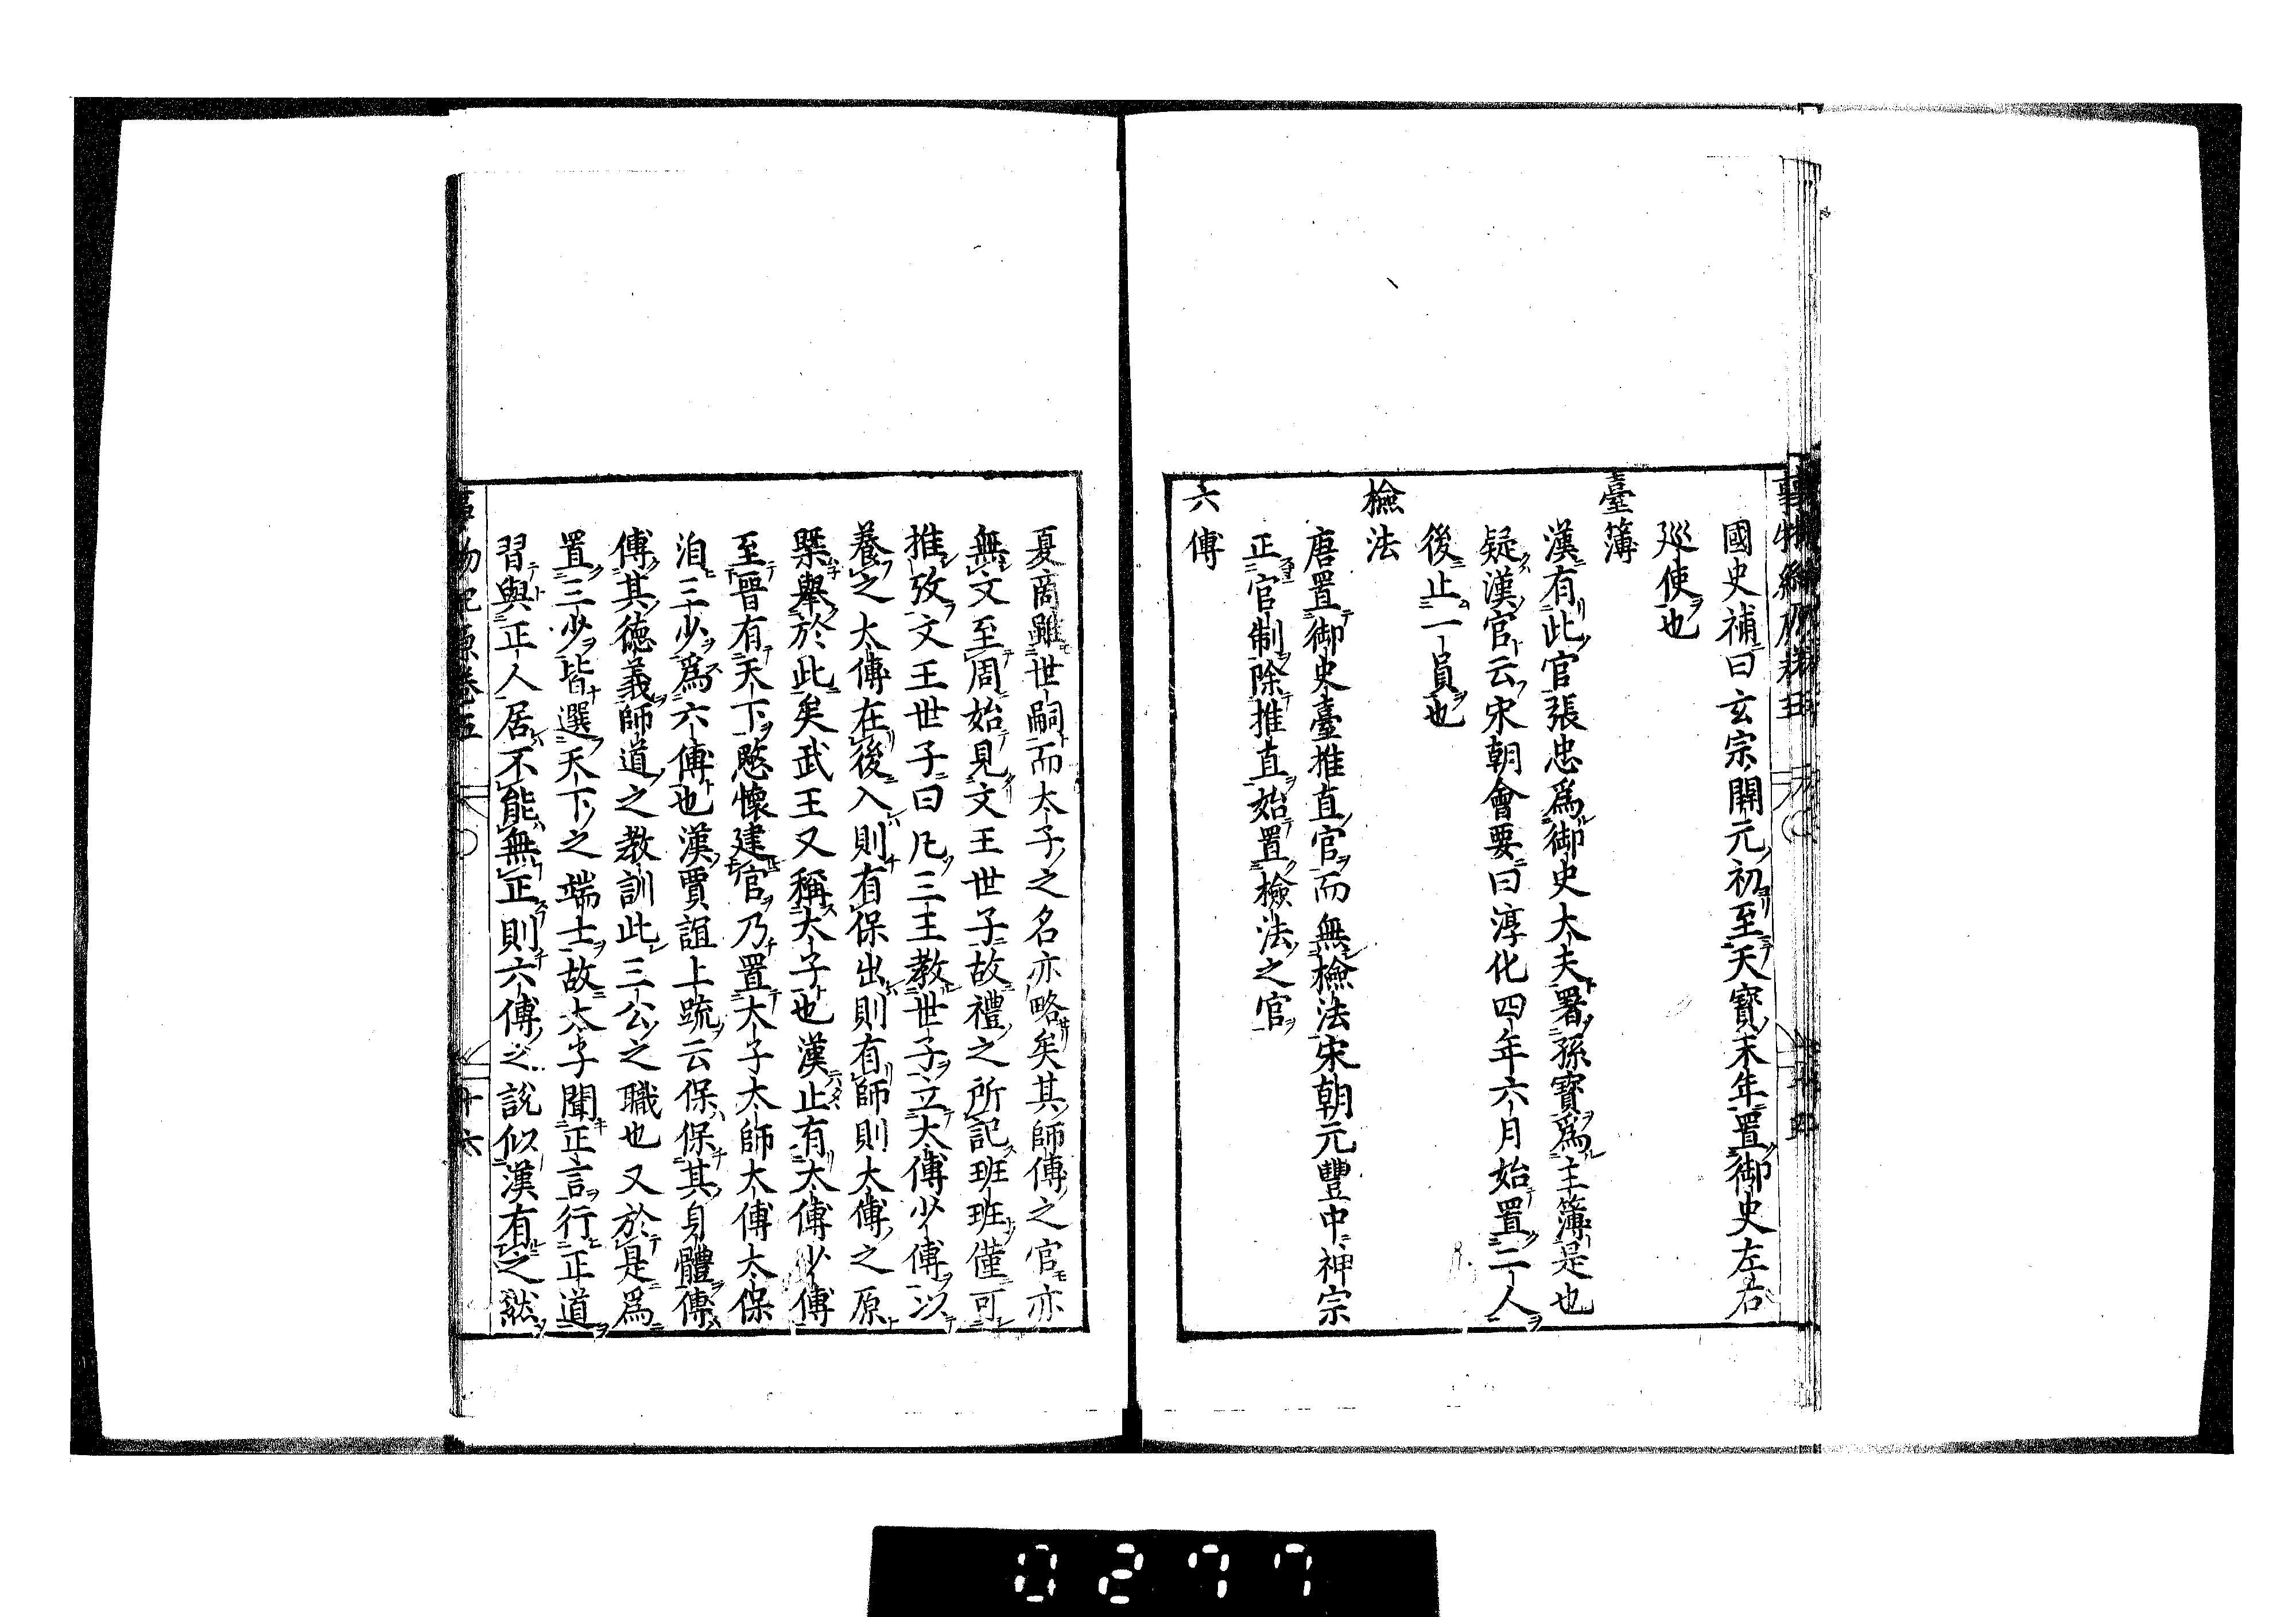 國史補曰玄宗開元初至天寶末年置御史左右
廵使也
臺簿
漢有此官張忠爲御史大夫署孫寶爲主簿是也
疑漢官云宋朝會要曰淳化四年六月始置二人
後止一員也
檢法
唐置御史臺推直官而無檢法宋朝元豐中神宗
正官制除推直始置檢法之官
六傅
夏商雖世嗣而太子之名亦略矣其師傅之官亦
無文至周始見文王世子故禮之所記班班僅可
推攷文王世子曰凡三王教世子立大傅少傅以
養之太傅在後入則有保出則有師則大傅之原
槩舉於此矣武王又稱太子也漢止有太傅少傅
至晉有天下愍懷建官乃置大子太師太傅太保
洎三少爲六傅也漢賈誼上疏云保保其身體傅
傅其德義師道之教訓此三公之職也又於是爲
置三少皆選天下之端士故太子聞正言行正道
習與正人居不能無正則六傅之説似漢有之然
事物紀原卷五
十六
0277